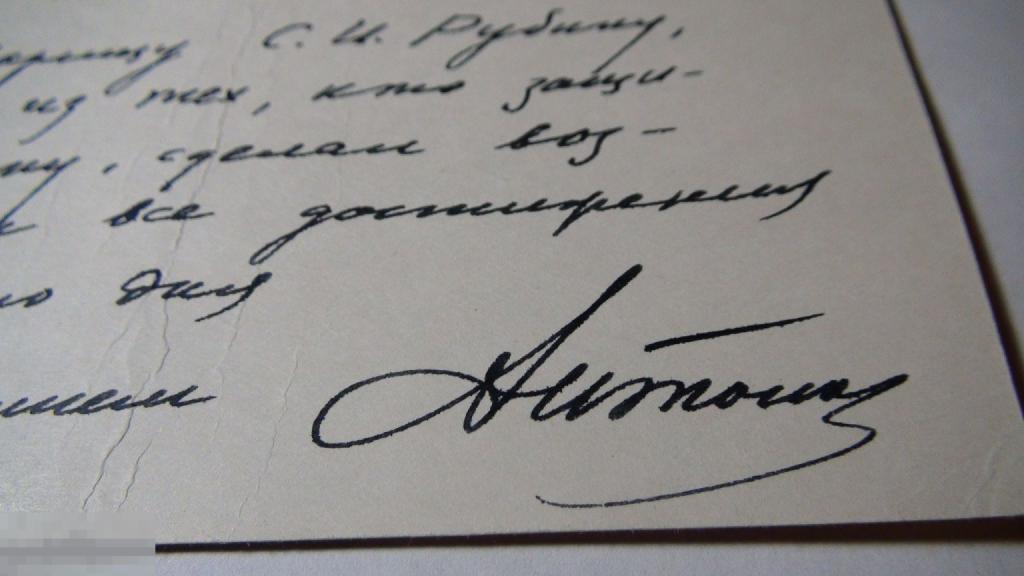 С. И. Рубину,
из тех, кто защи-
ну, сделал воз-
все достижения
го дня
Антонов